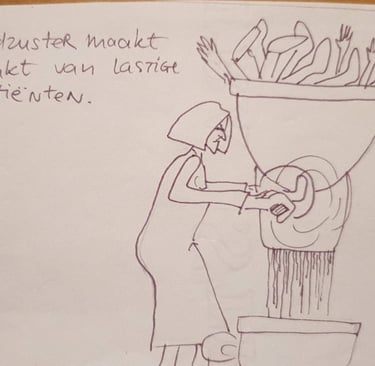 dzuster maakt
akt van lastige
tiënten.